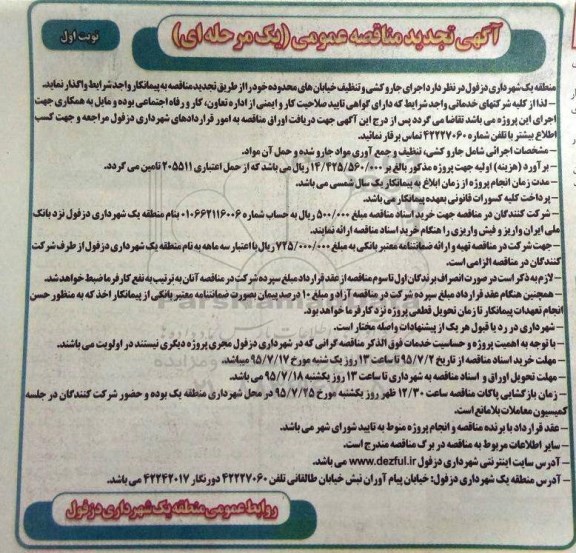 آگهی تجدید مناقصه عمومی (یک مرحله ای)
نوبت اول
منطقه یک شهرداری دزفول در نظر دارد اجرای جاروکشی و تنظیف خیابان های محدوده خود را از طریق تجدید مناقصه به پیمانکار واجد شرایط واگذار نماید.
– لذا از کلیه شرکتهای خدماتی واجد شرایط که دارای گواهی تایید صلاحیت کار و ایمنی از اداره تعاون، کار و رفاه اجتماعی بوده و مایل به همکاری جهت
اجرای این پروژه می باشد تقاضا می گردد پس از درج این آگهی جهت دریافت اوراق مناقصه به امور قراردادهای شهرداری دزفول مراجعه و جهت کسب
اطلاع بیشتر با تلفن شماره ۴۲۲۲۷۰۶۰ تماس برقرار نمائید.
– مشخصات اجرائی شامل جاروکشی، تنظیف و جمع آوری مواد جارو شده و حمل آن مواد.
– برآورد (هزینه) اولیه جهت پروژه مذکور بالغ بر ۱۴/۴۲۵/۵۶۰/۰۰۰ ریال می باشد که از حمل اعتباری ۲۰۵۵۱۱ تامین می گردد.
– مدت زمان انجام پروژه از زمان ابلاغ به پیمانکار یک سال شمسی می باشد.
– پرداخت کلیه کسورات قانونی بعهده پیمانکار می باشد.
– شرکت کنندگان در مناقصه جهت خرید اسناد مناقصه مبلغ ۵۰۰/۰۰۰ ریال به حساب شماره ۰۱۰۶۶۲۱۱۶۰۰۶ بنام منطقه یک شهرداری دزفول نزد بانک
ملی ایران واریز و فیش واریزی را هنگام خرید اسناد مناقصه ارائه نمایند.
– جهت شرکت در مناقصه تهیه و ارائه ضمانتنامه معتبر بانکی به مبلغ ۷۲۵/۰۰۰/۰۰۰ ریال با اعتبار سه ماهه به نام منطقه یک شهرداری دزفول از طرف شرکت
کنندگان در مناقصه الزامی است.
– لازم به ذکر است در صورت انصراف برندگان اول تا سوم مناقصه از عقد قرارداد مبلغ سپرده شرکت در مناقصه آنان به ترتیب به نفع کارفرما ضبط خواهد شد.
– همچنین هنگام عقد قرارداد مبلغ سپرده شرکت در مناقصه آزاد و مبلغ ۱۰ درصد پیمان بصورت ضمانتنامه معتبر بانکی از پیمانکار اخذ که به منظور حسن
انجام تعهدات پیمانکار تا زمان تحویل قطعی پروژه نزد کارفرما خواهد بود.
– شهرداری در رد یا قبول هر یک از پیشنهادات واصله مختار است.
– با توجه به اهمیت پروژه و حساسیت خدمات فوق الذکر مناقصه گرانی که در شهرداری دزفول مجری پروژه دیگری نیستند در اولویت می باشند.
– مهلت خرید اسناد مناقصه از تاریخ ۹۵/۷/۲ تا ساعت ۱۳ روز یک شنبه مورخ ۹۵/۷/۱۷ میباشد.
– مهلت تحویل اوراق و اسناد مناقصه به شهرداری تا ساعت ۱۳ روز یکشنبه ۹۵/۷/۱۸ می باشد.
– زمان بازگشایی پاکات مناقصه ساعت ۱۲/۳۰ ظهر روز یکشنبه مورخ ۹۵/۷/۲۵ در محل شهرداری منطقه یک بوده و حضور شرکت کنندگان در جلسه
کمیسیون معاملات بلامانع است.
– عقد قرارداد با برنده مناقصه و انجام پروژه منوط به تایید شورای شهر می باشد.
– سایر اطلاعات مربوط به مناقصه در برگ مناقصه مندرج است.
– آدرس سایت اینترنتی شهرداری دزفول www.dezful.ir می باشد.
– آدرس منطقه یک شهرداری دزفول: خیابان پیام آوران نبش خیابان طالقانی تلفن ۴۲۲۲۷۰۶۰ دورنگار ۴۲۲۴۲۰۱۷ می باشد.
روابط عمومی منطقه یک شهرداری دزفول